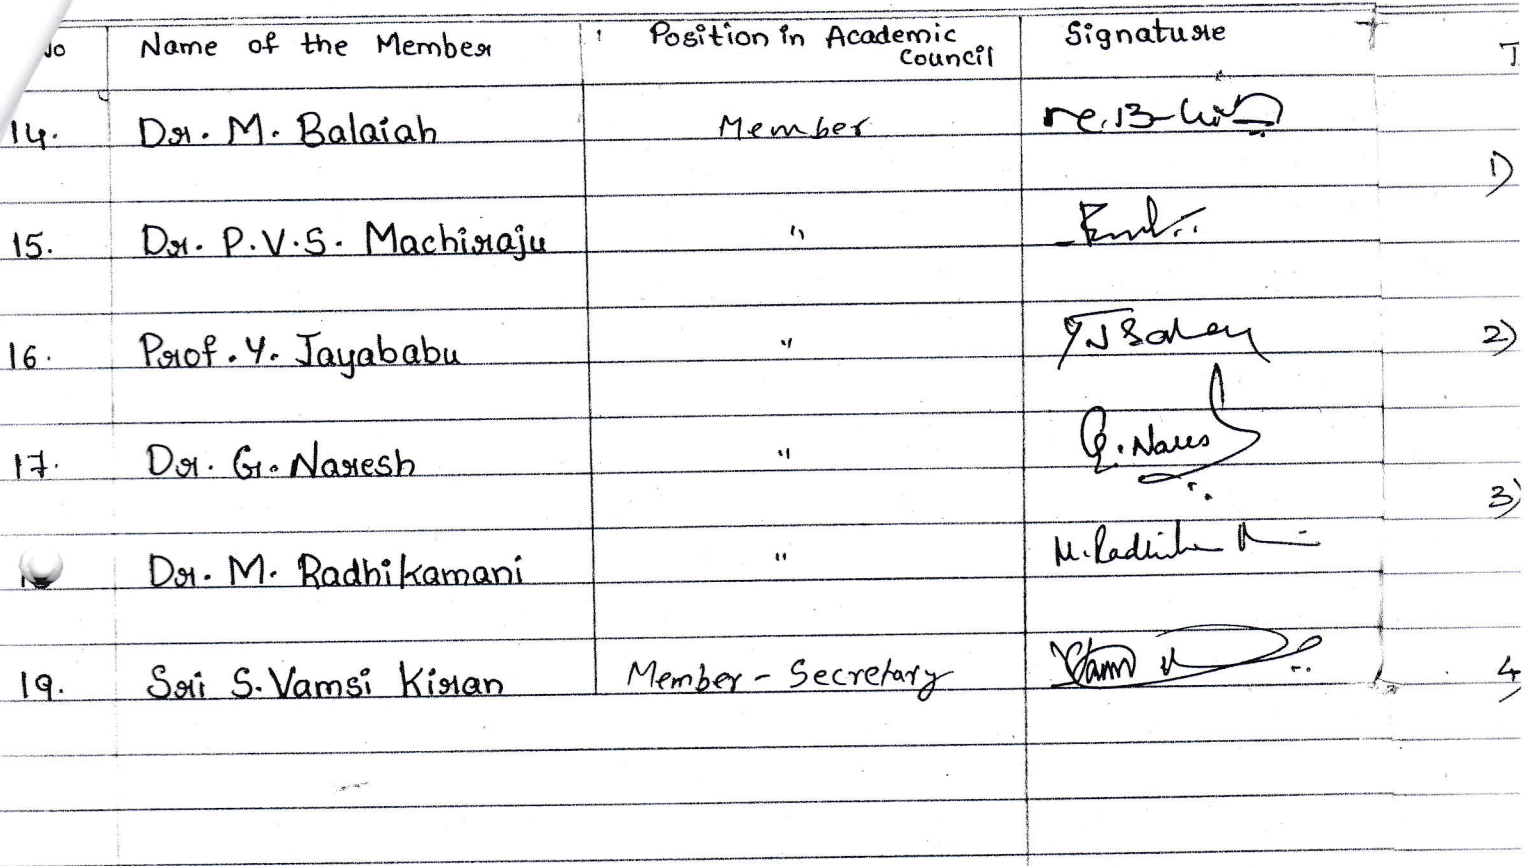 No Name of the Member Position in Academic Council Signature
14. Dr. M. Balaiah Member
15. Dr. P.V.S. Machiraju "
16. Prof. Y. Jayababu "
17. Dr. G. Naresh " G. Nares
Dr. M. Radhikamani " M. Radhika
19. Sri S. Vamsi Kiran Member - Secretary
T
1)
2)
3)
4)